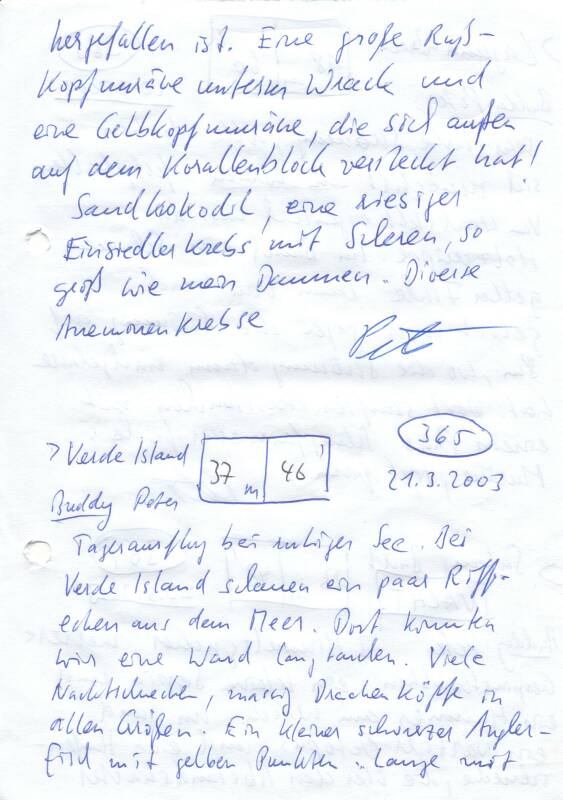 hergefallen ist. Eine große Ruß-
kopfmuräne unterm Wrack und
eine Gelbkopfmuräne, die sich außen
auf dem Korallenblock versteckt hat!
Sandkrokodil, eine riesiger
Einsiedlerkrebs mit Scheren, so
groß wie mein Daumen. Diverse
Anemonenkrebse
365
> Verde Island 37 m 46'
21.3.2003
Buddy Peter
Tagesausflug bei ruhiger See. Bei
Verde Island schauen ein paar Riff-
echen aus dem Meer. Dort konnten
wir eine Wand langtauchen. Viele
Nachtschnecken, massig Drachenköpfe in
allen Größen. Ein kleiner schwarzer Angler-
fisch mit gelben Punkten. Lange mit